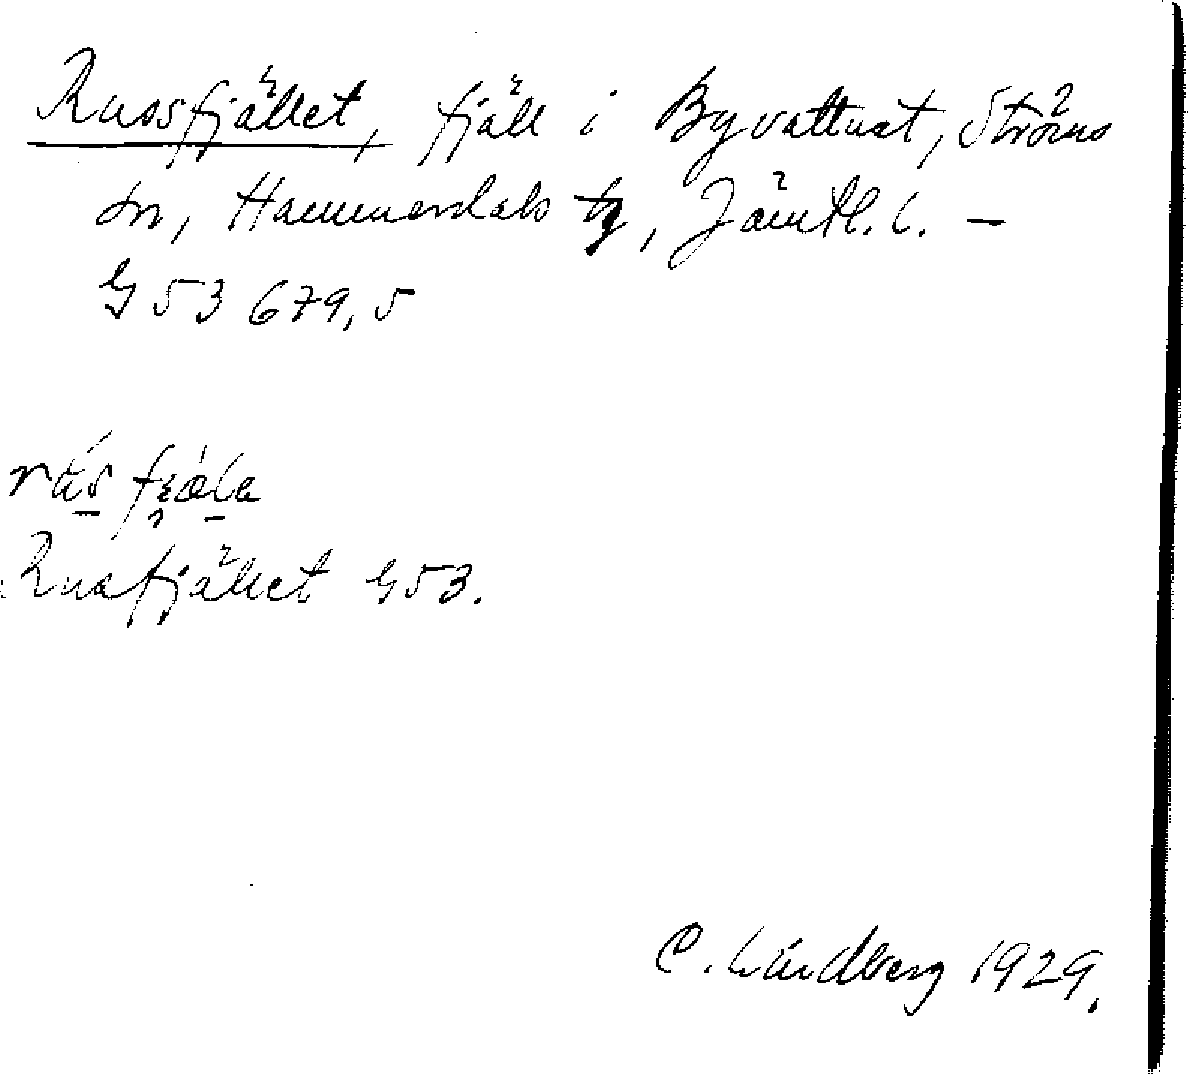 Russfjället, fjäll i Byvattnet, Ströms
sn, Hammerdals tg, Jämtl. l. –
G 53 679, 5
Rusfjället G 53.
C. Lindberg 1929.